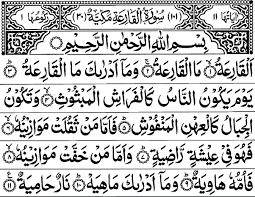 اٰیَاتُهَا ١١ (١٠١) سُوْرَةُ الْقَارِعَةِ مَكِّیَّةٌ (٣٠) رُكُوْعُهَا ١
بِسْمِ اللّٰهِ الرَّحْمٰنِ الرَّحِیْمِ
اَلْقَارِعَةُ ۙ﴿١﴾ مَا الْقَارِعَةُ ۚ﴿٢﴾ وَمَاۤ اَدْرٰىكَ مَا الْقَارِعَةُ ؕ﴿٣﴾
یَوْمَ یَكُوْنُ النَّاسُ كَالْفَرَاشِ الْمَبْثُوْثِ ۙ﴿٤﴾ وَتَكُوْنُ
الْجِبَالُ كَالْعِهْنِ الْمَنْفُوْشِ ؕ﴿٥﴾ فَاَمَّا مَنْ ثَقُلَتْ مَوَازِیْنُهٗ ۙ﴿٦﴾
فَهُوَ فِیْ عِیْشَةٍ رَّاضِیَةٍ ؕ﴿٧﴾ وَاَمَّا مَنْ خَفَّتْ مَوَازِیْنُهٗ ۙ﴿٨﴾
فَاُمُّهٗ هَاوِیَةٌ ؕ﴿٩﴾ وَمَاۤ اَدْرٰىكَ مَا هِیَهْ ؕ﴿١٠﴾ نَارٌ حَامِیَةٌ ﴿١١﴾